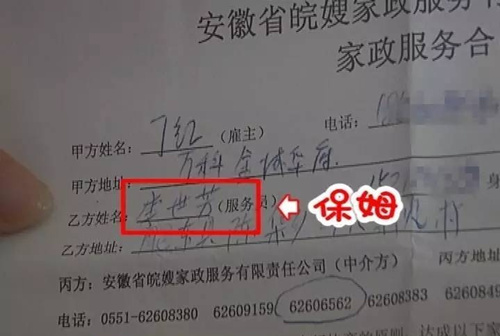 安徽省皖嫂家政服务有
家政服务合
甲方姓名：丁红（雇主） 电话：
甲方地址：万科金域华府
乙方姓名：李世芳（服务员） 保姆
乙方地址：肥东县
丙方：安徽省皖嫂家政服务有限责任公司（中介方）
电话：0551-62608380 62609159 62606562 62608383
达成以下